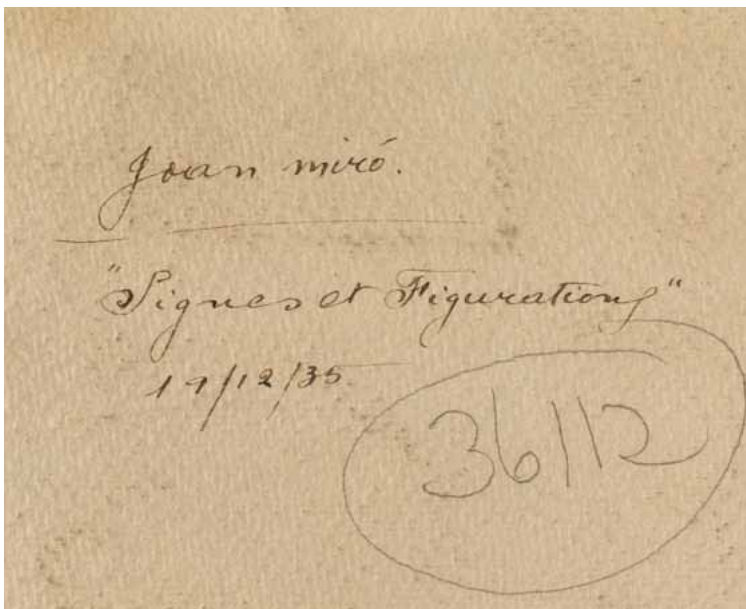 Joan Miró.
"Signes et Figurations"
19/12/35.
36112